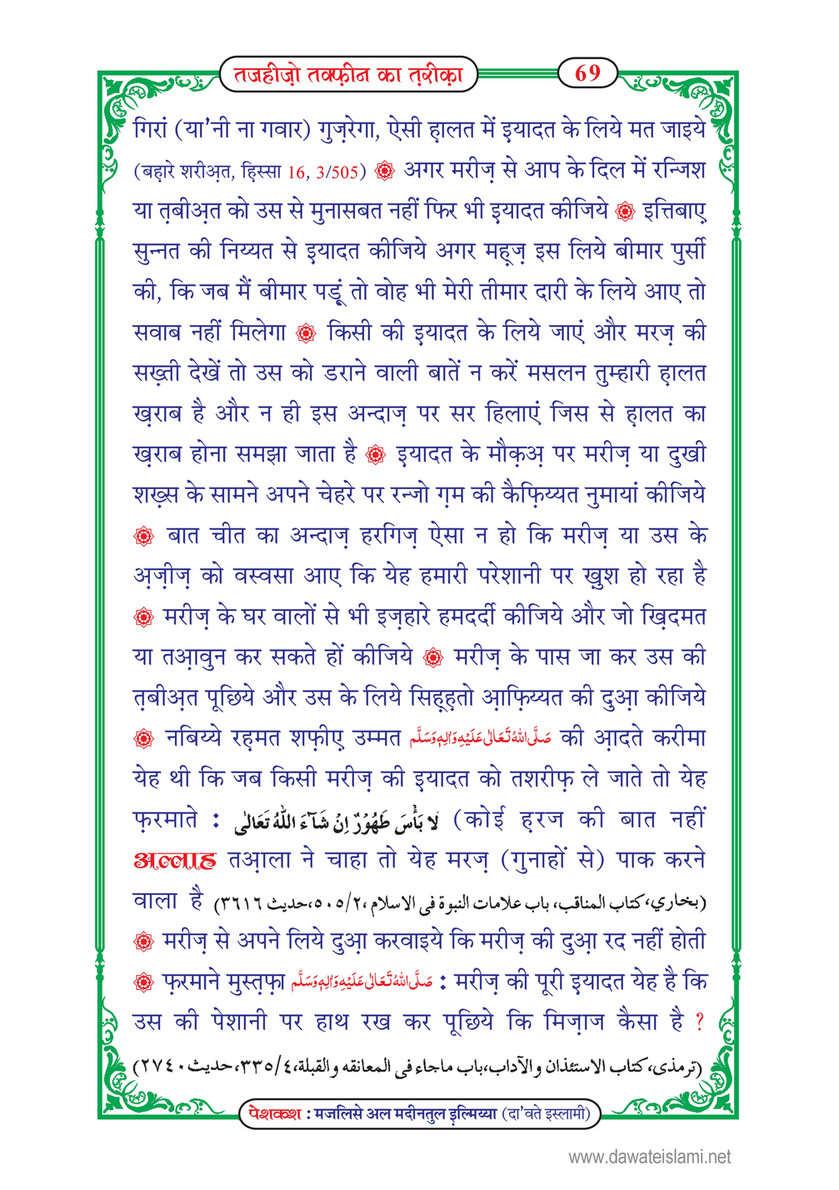 तजहीज़ो तक्फ़ीन का त़रीक़ा
69
गिरां (या'नी ना गवार) गुज़रेगा, ऐसी ह़ालत में इ़यादत के लिये मत जाइये
(बहारे शरीअ़त, हिस्सा 16, 3/505) ۞ अगर मरीज़ से आप के दिल में रन्जिश
या त़बीअ़त को उस से मुनासबत नहीं फिर भी इ़यादत कीजिये ۞ इत्तिबाए़
सुन्नत की निय्यत से इ़यादत कीजिये अगर मह़्ज़ इस लिये बीमार पुर्सी
की, कि जब मैं बीमार पड़ूं तो वोह भी मेरी तीमार दारी के लिये आए तो
सवाब नहीं मिलेगा ۞ किसी की इ़यादत के लिये जाएं और मरज़ की
सख़्ती देखें तो उस को डराने वाली बातें न करें मसलन तुम्हारी ह़ालत
ख़राब है और न ही इस अन्दाज़ पर सर हिलाएं जिस से ह़ालत का
ख़राब होना समझा जाता है ۞ इ़यादत के मौक़अ़ पर मरीज़ या दुखी
शख़्स के सामने अपने चेहरे पर रन्जो ग़म की कैफ़िय्यत नुमायां कीजिये
۞ बात चीत का अन्दाज़ हरगिज़ ऐसा न हो कि मरीज़ या उस के
अ़ज़ीज़ को वस्वसा आए कि येह हमारी परेशानी पर ख़ुश हो रहा है
۞ मरीज़ के घर वालों से भी इज़्हारे हमदर्दी कीजिये और जो ख़िदमत
या तआ़वुन कर सकते हों कीजिये ۞ मरीज़ के पास जा कर उस की
त़बीअ़त पूछिये और उस के लिये सिह़्ह़तो आ़फ़िय्यत की दुआ़ कीजिये
۞ नबिय्ये रह़मत शफ़ीए़ उम्मत صَلَّى اللهُ تَعَالٰى عَلَيْهِ وَاٰلِهٖ وَسَلَّم की आ़दते करीमा
येह थी कि जब किसी मरीज़ की इ़यादत को तशरीफ़ ले जाते तो येह
फ़रमाते : لَا بَأْسَ طَهُوْرٌ اِنْ شَآءَ اللّٰهُ تَعَالٰى (कोई ह़रज की बात नहीं
अल्लाह तआ़ला ने चाहा तो येह मरज़ (गुनाहों से) पाक करने
वाला है (بخاري، كتاب المناقب، باب علامات النبوة في الاسلام، ٥٠٥/٢، حديث ٣٦١٦)
۞ मरीज़ से अपने लिये दुआ़ करवाइये कि मरीज़ की दुआ़ रद नहीं होती
۞ फ़रमाने मुस्त़फ़ा صَلَّى اللهُ تَعَالٰى عَلَيْهِ وَاٰلِهٖ وَسَلَّم : मरीज़ की पूरी इ़यादत येह है कि
उस की पेशानी पर हाथ रख कर पूछिये कि मिज़ाज कैसा है ?
(ترمذى، كتاب الاستئذان والآداب، باب ماجاء فى المعانقه والقبلة، ٣٣٥/٤، حديث ٢٧٤٠)
पेशकश : मजलिसे अल मदीनतुल इ़ल्मिय्या (दा'वते इस्लामी)
www.dawateislami.net